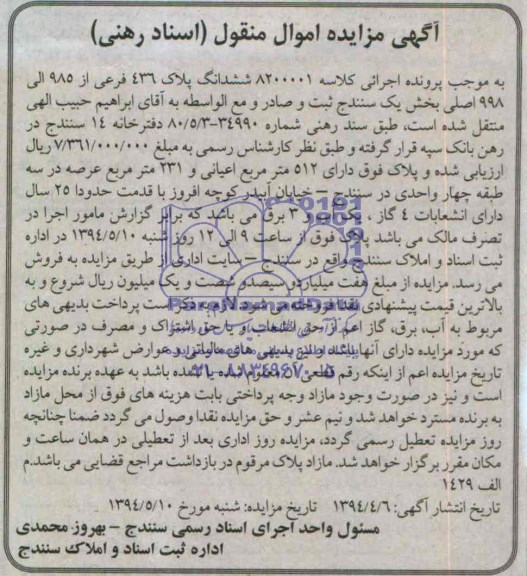 آگهی مزایده اموال منقول (اسناد رهنی)
به موجب پرونده اجرائی کلاسه ۸۲۰۰۰۰۱ ششدانگ پلاک ۴۳۶ فرعی از ۹۸۵ الی
۹۹۸ اصلی بخش یک سنندج ثبت و صادر و مع الواسطه به آقای ابراهیم حبیب الهی
منتقل شده است، طبق سند رهنی شماره ۳۴۹۹۰-۸۰/۵/۳ دفترخانه ۱۴ سنندج در
رهن بانک سپه قرار گرفته و طبق نظر کارشناس رسمی به مبلغ ۷/۳۶۱/۰۰۰/۰۰۰ ریال
ارزیابی شده و پلاک فوق دارای ۵۱۲ متر مربع اعیانی و ۲۳۱ متر مربع عرصه در سه
طبقه چهار واحدی در سنندج – خیابان آبیدر کوچه افروز با قدمت حدودا ۲۵ سال
دارای انشعابات ۴ گاز، یک و ۳ برق می باشد که برابر گزارش مامور اجرا در
تصرف مالک می باشد پلاک فوق از ساعت ۹ الی ۱۲ روز شنبه ۱۳۹۴/۵/۱۰ در اداره
ثبت اسناد و املاک سنندج واقع در سنندج – سایت اداری از طریق مزایده به فروش
می رسد. مزایده از مبلغ هفت میلیارد و سیصد و شصت و یک میلیون ریال شروع و به
بالاترین قیمت پیشنهادی نقدا فروخته می شود لازم بذکر است پرداخت بدیهی های
مربوط به آب، برق، گاز اعم از حق انشعاب و یا حق اشتراک و مصرف در صورتی
که مورد مزایده دارای آنها باشد و نیز بدیهی های مالیاتی و عوارض شهرداری و غیره
تاریخ مزایده اعم از اینکه رقم قطعی آن معلوم شده یا نشده باشد به عهده برنده مزایده
است و نیز در صورت وجود مازاد وجه پرداختی بابت هزینه های فوق از محل مازاد
به برنده مسترد خواهد شد و نیم عشر و حق مزایده نقدا وصول می گردد ضمنا چنانچه
روز مزایده تعطیل رسمی گردد، مزایده روز اداری بعد از تعطیلی در همان ساعت و
مکان مقرر برگزار خواهد شد. مازاد پلاک مرقوم در بازداشت مراجع قضایی می باشد.م
الف ۱۴۲۹
تاریخ انتشار آگهی: ۱۳۹۴/۴/۶ تاریخ مزایده: شنبه مورخ ۱۳۹۴/۵/۱۰
مسئول واحد اجرای اسناد رسمی سنندج – بهروز محمدی
اداره ثبت اسناد و املاک سنندج
ParsNamadData
۰۲۱-۸۸۳۴۹۶۷۰-۵